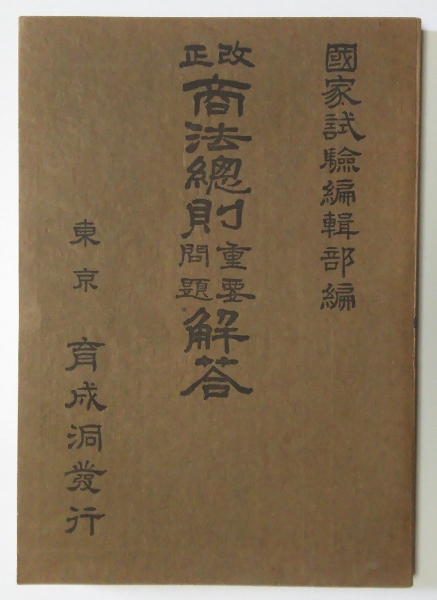 國家試驗編輯部編
改正商法總則重要問題解答
東京 育成洞發行